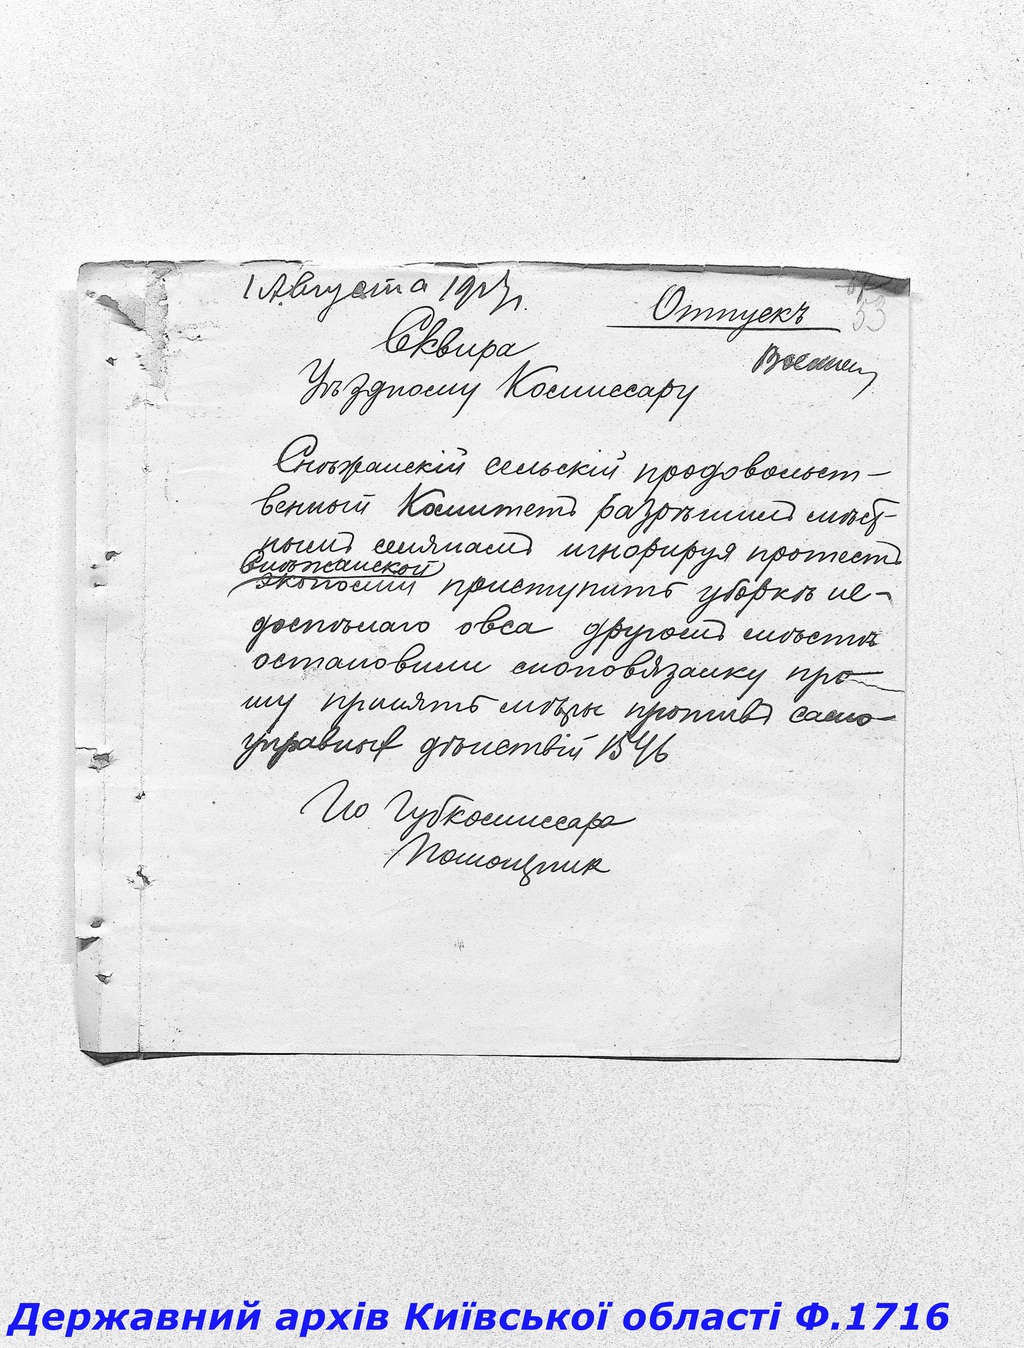 1 Августа 1917 г.
Отпускъ
53
Сквира
Уѣздному Комиссару
Снѣжанскій сельскій продовольст-
венный Комитетъ разрѣшилъ мѣст-
нымъ селянамъ игнорируя протестъ
Снѣжанской
экономіи приступить уборкѣ не-
доспѣлаго овса другомъ мѣстѣ
остановили сноповязалку про-
шу принять мѣры противъ само-
управныхъ дѣйствій 1546
Ио Губкомиссара
Помощник
Державний архів Київської області Ф.1716